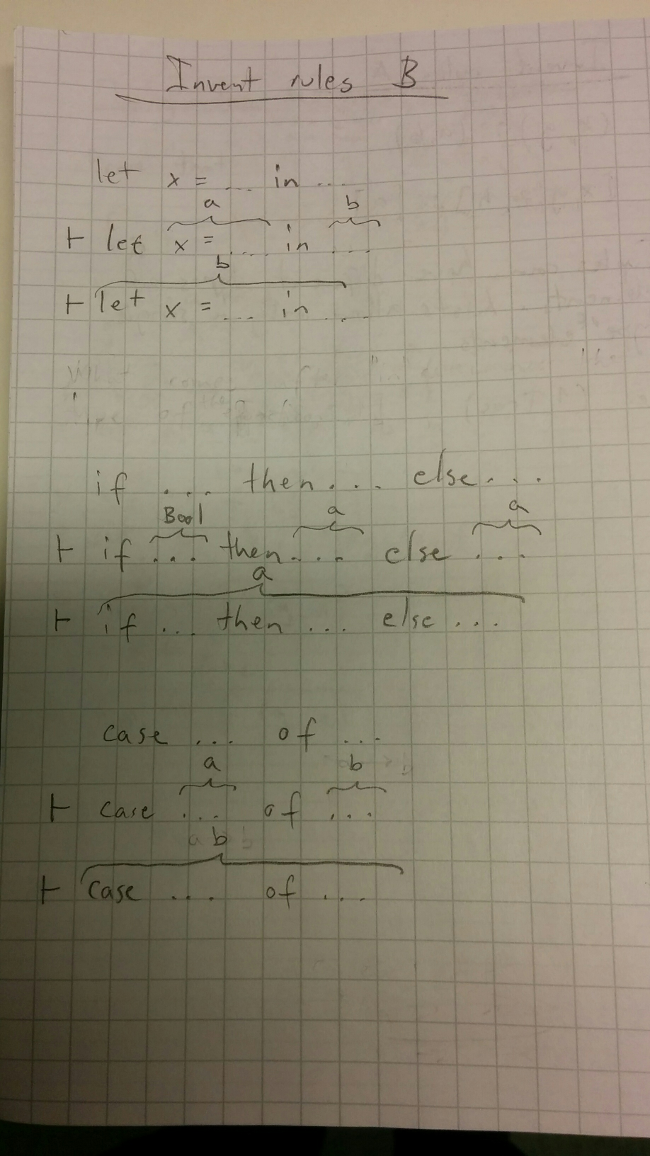 Invent rules B
let x = ... in ...
a b
⊢ let x = ... in ...
b
⊢ let x = ... in ...
if ... then ... else ...
Bool a a
⊢ if ... then ... else ...
a
⊢ if ... then ... else ...
case ... of ...
a b
⊢ case ... of ...
b
⊢ case ... of ...